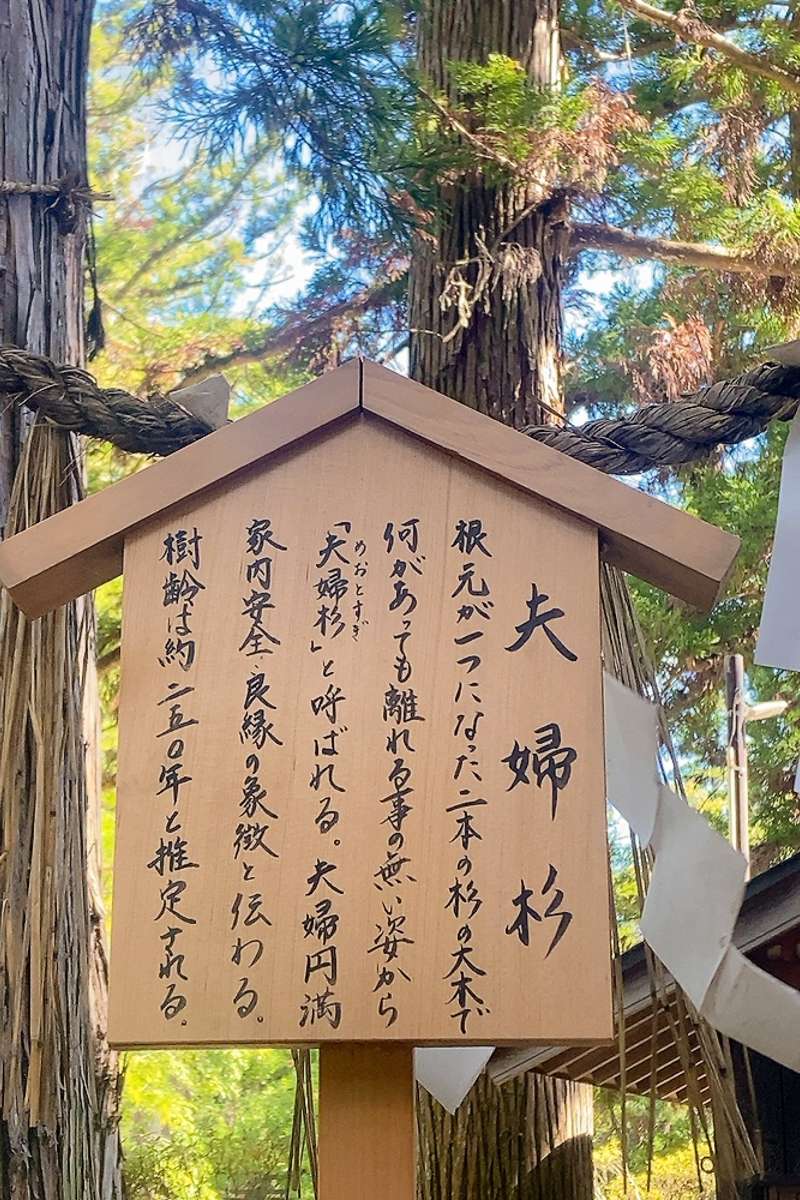 夫婦杉
根元が一つになった二本の杉の大木で
何があっても離れる事の無い姿から
「夫婦杉」と呼ばれる。夫婦円満
めおとすぎ
家内安全・良縁の象徴と伝わる。
樹齢は約二五〇年と推定される。